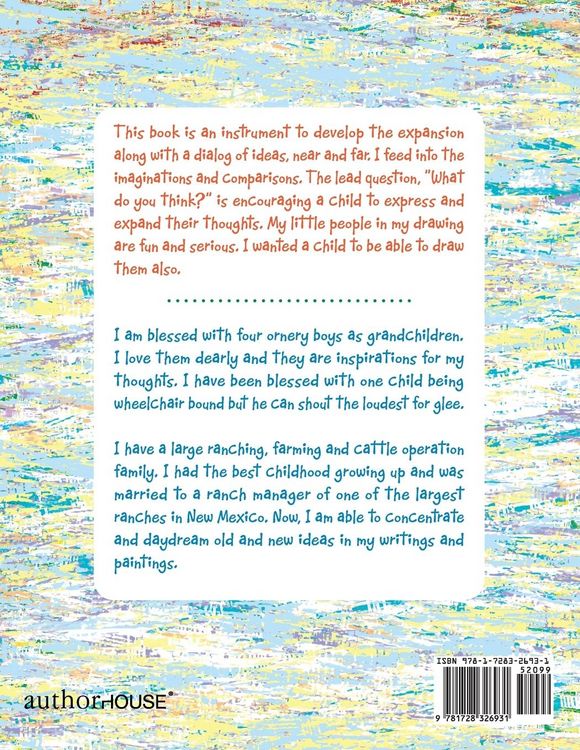 This book is an instrument to develop the expansion
along with a dialog of ideas, near and far. I feed into the
imaginations and comparisons. The lead question, "What
do you think?" is encouraging a child to express and
expand their thoughts. My little people in my drawing
are fun and serious. I wanted a child to be able to draw
them also.
I am blessed with four ornery boys as grandchildren.
I love them dearly and they are inspirations for my
thoughts. I have been blessed with one child being
wheelchair bound but he can shout the loudest for glee.
I have a large ranching, farming and cattle operation
family. I had the best childhood growing up and was
married to a ranch manager of one of the largest
ranches in New Mexico. Now, I am able to concentrate
and daydream old and new ideas in my writings and
paintings.
authorHOUSE®
ISBN 978-1-7283-2693-1
52099
9 781728 326931